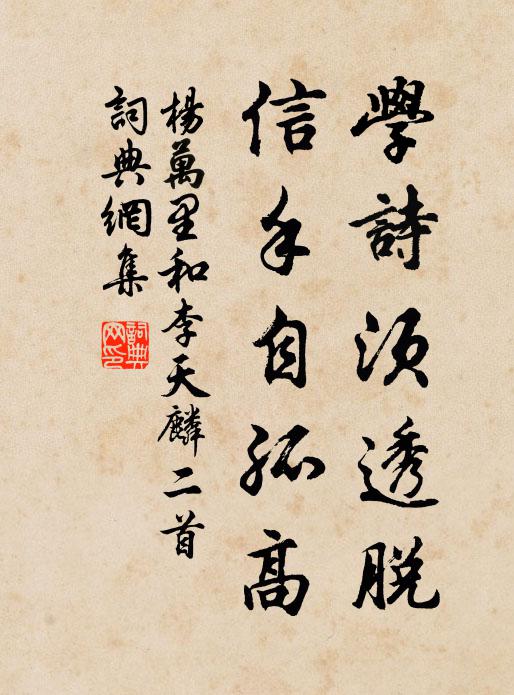 學詩須透脫
信手自孤高
楊萬里和李天麟二首
詞典網集
詞典網印